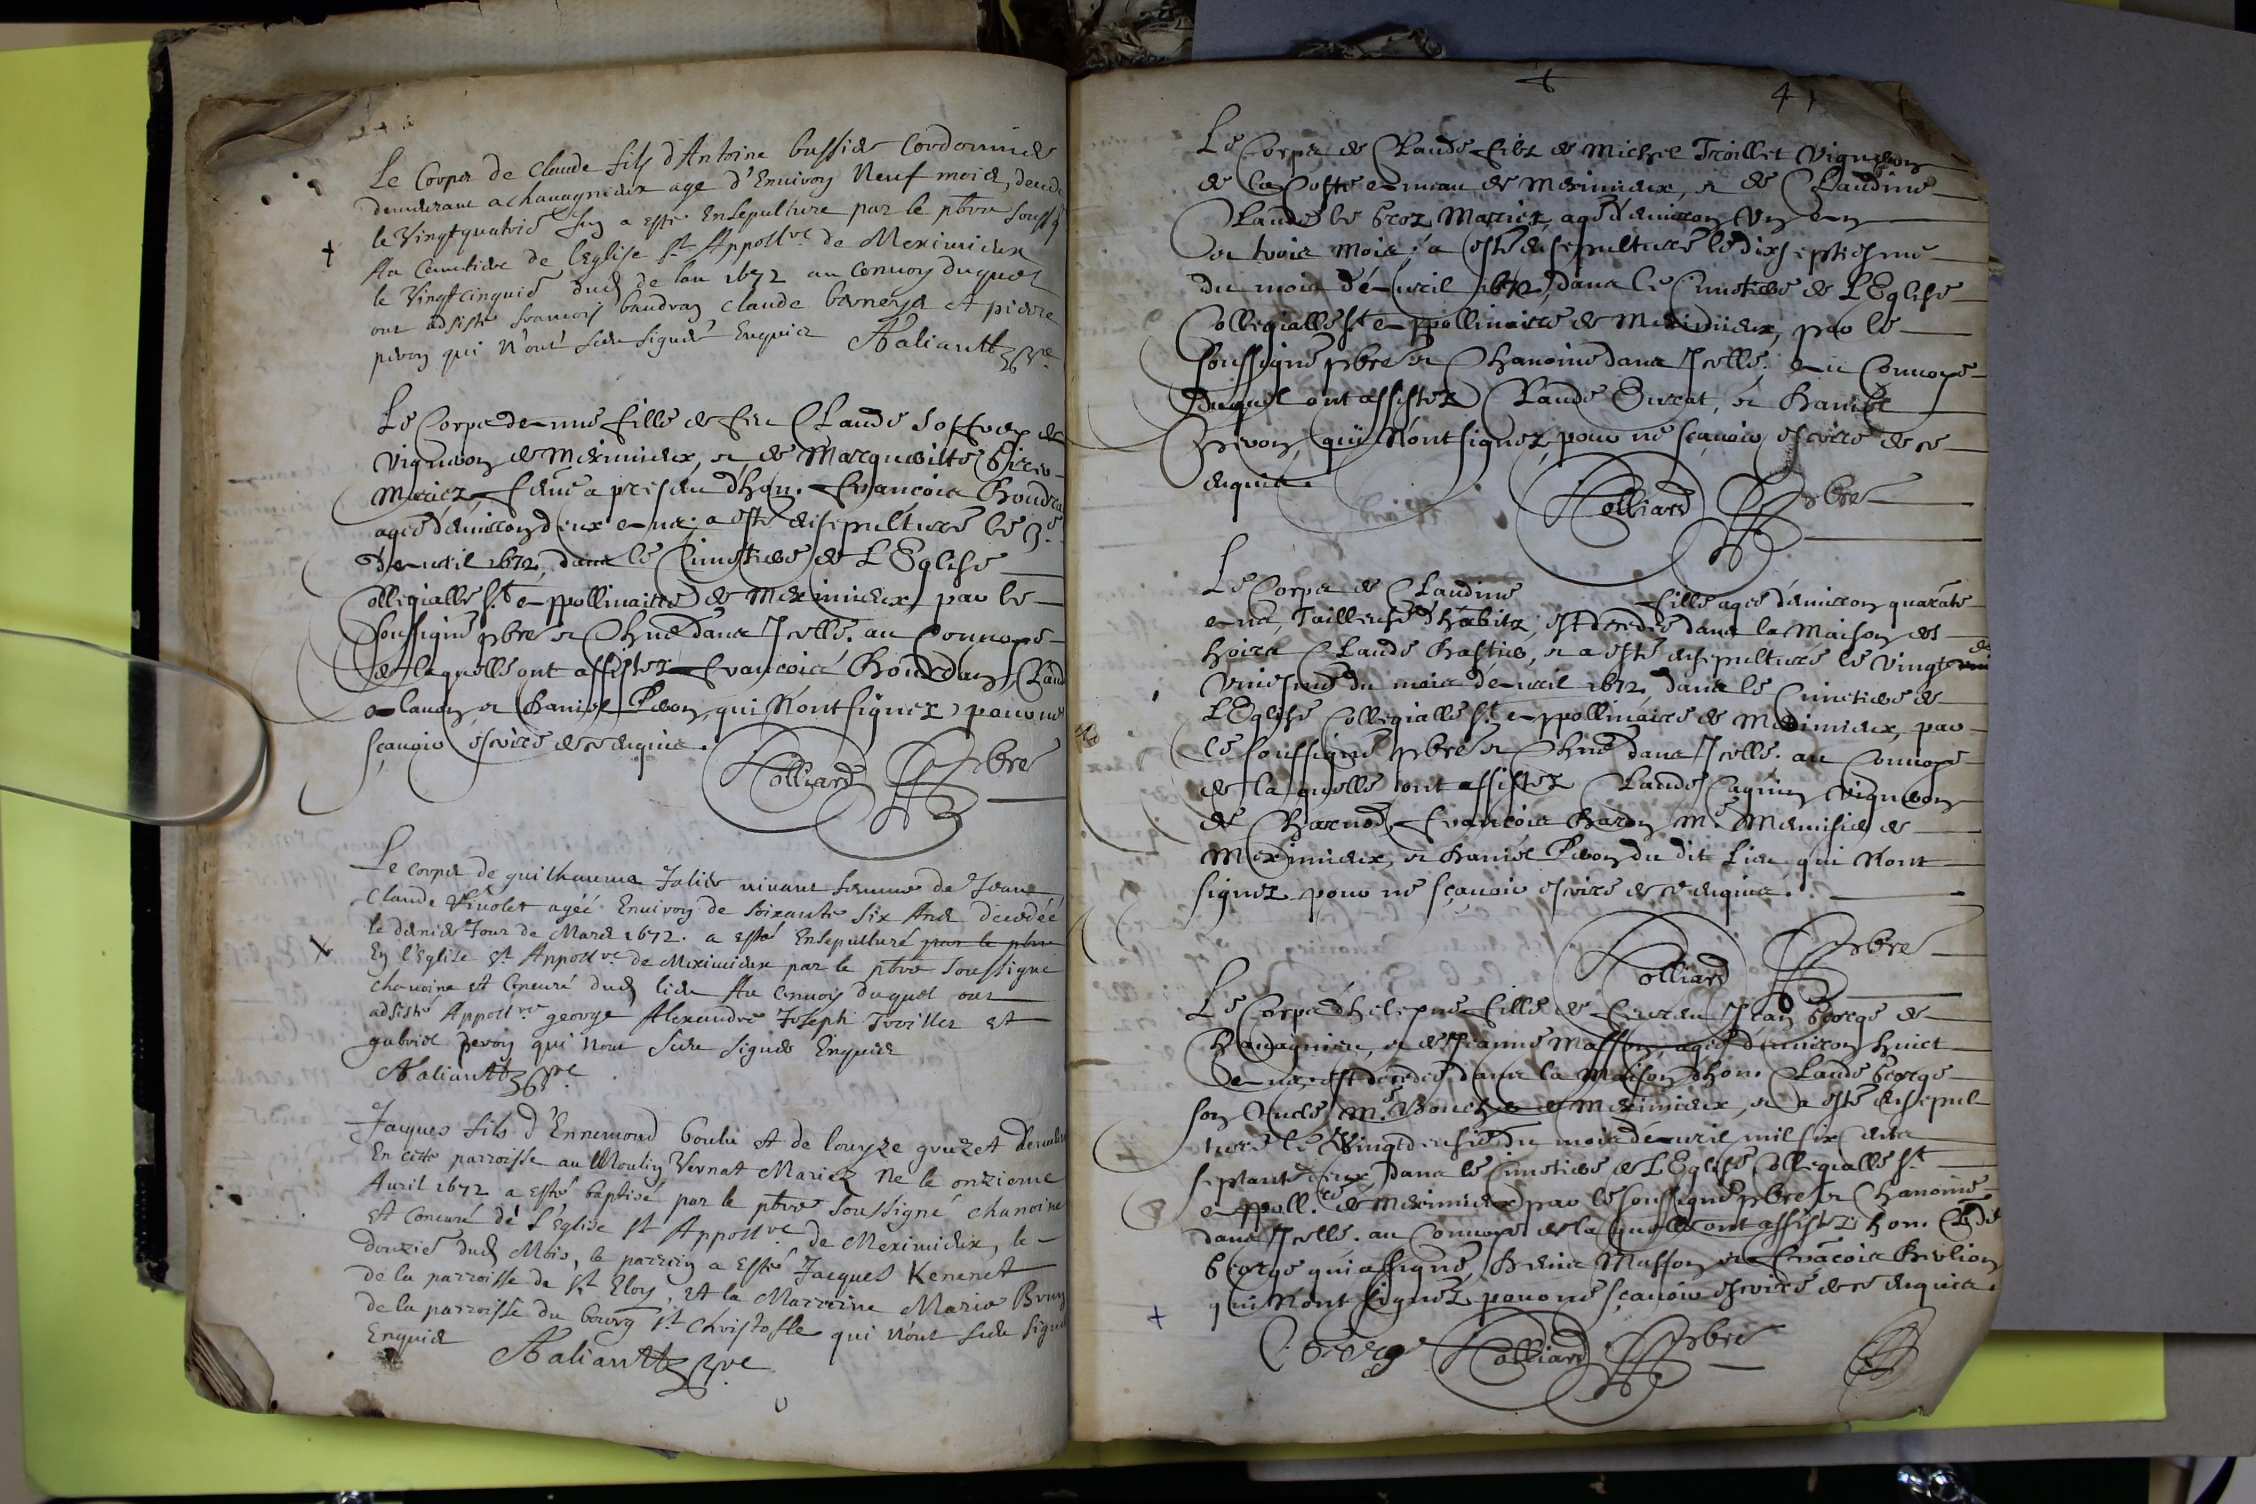 Le Corps de Claude fils d'Antoine bussier Cordonnier
demeurant a chauagnieux age d'Enuiron Neuf mois, decede
le Vingt quatrie a esté Ensepulture par le pbre soussig
Au Cemetiere de l'eglise St Appoll.re de Meximieux
le Vingt cinquie dud de lan 1672 au conuoy duquel
ont adsisté francois baudran claude et pierre
peron qui n'ont sceu signer Enquis
Le Corps de fille de feu Claude
vigneron de Meximieux, et de Margueritte
Mariez, femme a present d'hon. Francois
agee d'enuiron deux ans a esté ensepulturé le 3.e
d'auril 1672, dans le Cimetiere de L'Eglise
Collegialle St appollinaire de Meximieux, par le
Soussigné pbre et Chne dans Icelle. au Conuoye
de laquelle ont assistez Francois
et Daniel Peron, qui N'ont signez, pour ne
sçauoir escrire de ce enquis.
Colliard pbre
Le corps de guilhauma Jalier uiuant femme de Jean
Claude Viuolet agée Enuiron de soixante six Ans decedée
le dernier Jour de Mars 1672. a esté Ensepulturé par le pbre
En l'Eglise St Appoll.re de Meximieux par le pbre soussigné
chanoine et Concuré dud lieu Au Conuoy duquel ont
adsisté Appoll.re george Alexandre Joseph Troillet et
gabriel peron qui n'ont sceu signer Enquis
Jacques fils d'Ennemond Goulu et de louyze gruzet
En ceste parroisse au Moulin Vernat Mariez Ne le onzieme
Auril 1672 a esté baptisé par le pbre soussigné chanoine
et Concuré de l'Eglise St Appoll.re de Meximieux, le
douzie dud Mois, le parrein a esté Jacques Kenenet
de la parroisse de St Eloy, et la Marreine Marie Brun
de la parroisse du bourg St Christofle qui n'ont sceu signer
Enquis
41
Le Corps de Claude filz de Michel Troillet Vigneron
de la Coste enuau de Meximieux, et de Claudine
Claude le Groz Mariez, agé d'enuiron Un an
et trois Mois; a esté ensepulturé le dix septiesme
du mois d'Auril 1672, dans le Cimetiere de L'Eglise
Collegialle St appollinaire de Meximieux, par le
soussigné pbre et Chanoine dans Icelle. au Conuoye
duquel ont assistez Claude et Daniel
Peron, qui N'ont signez, pour ne sçauoir escrire de ce
enquis.
Colliard pbre
Le Corps de Claudine fille agee d'enuiron quarate
ans, Tailleuse d'habitz, est decedee dans la Maison des
hoirs Claude et a esté ensepulturé le Vingt
Uniesme du mois d'auril 1672, dans le Cimetiere de
L'Eglise Collegialle St appollinaire de Meximieux, par
le soussigné pbre et Chne dans Icelle. au Conuoye
de laquelle ont assistez Claude Vigneron
de Charnod, Francois Baron M.e Menusier de
Meximieux, et Daniel Peron du dit Lieu qui N'ont
signez pour ne sçauoir escrire de ce enquis.
Colliard pbre
Le Corps d'helepne fille de feu Jean George de
Chauagnieu, et de Jeanne Masson, agee d'enuiron huict
ans, est decedee dans la Maison d'hon. Claude George
son Oncle M.e Boucher de Meximieux, et a esté ensepul
turé le Vingt deusie du mois d'auril mil six cents
septante deux, dans le Cimetiere de L'Eglise Collegialle St
appoll.re de Meximieux par le soussigné pbre et Chanoine
dans Icelle. au Conuoye de laquelle ont assistez hon. Cl dit
George qui a signé, Denis Masson et Francois
qui N'ont signez pour ne sçauoir escrire de ce enquis.
C. George Colliard pbre